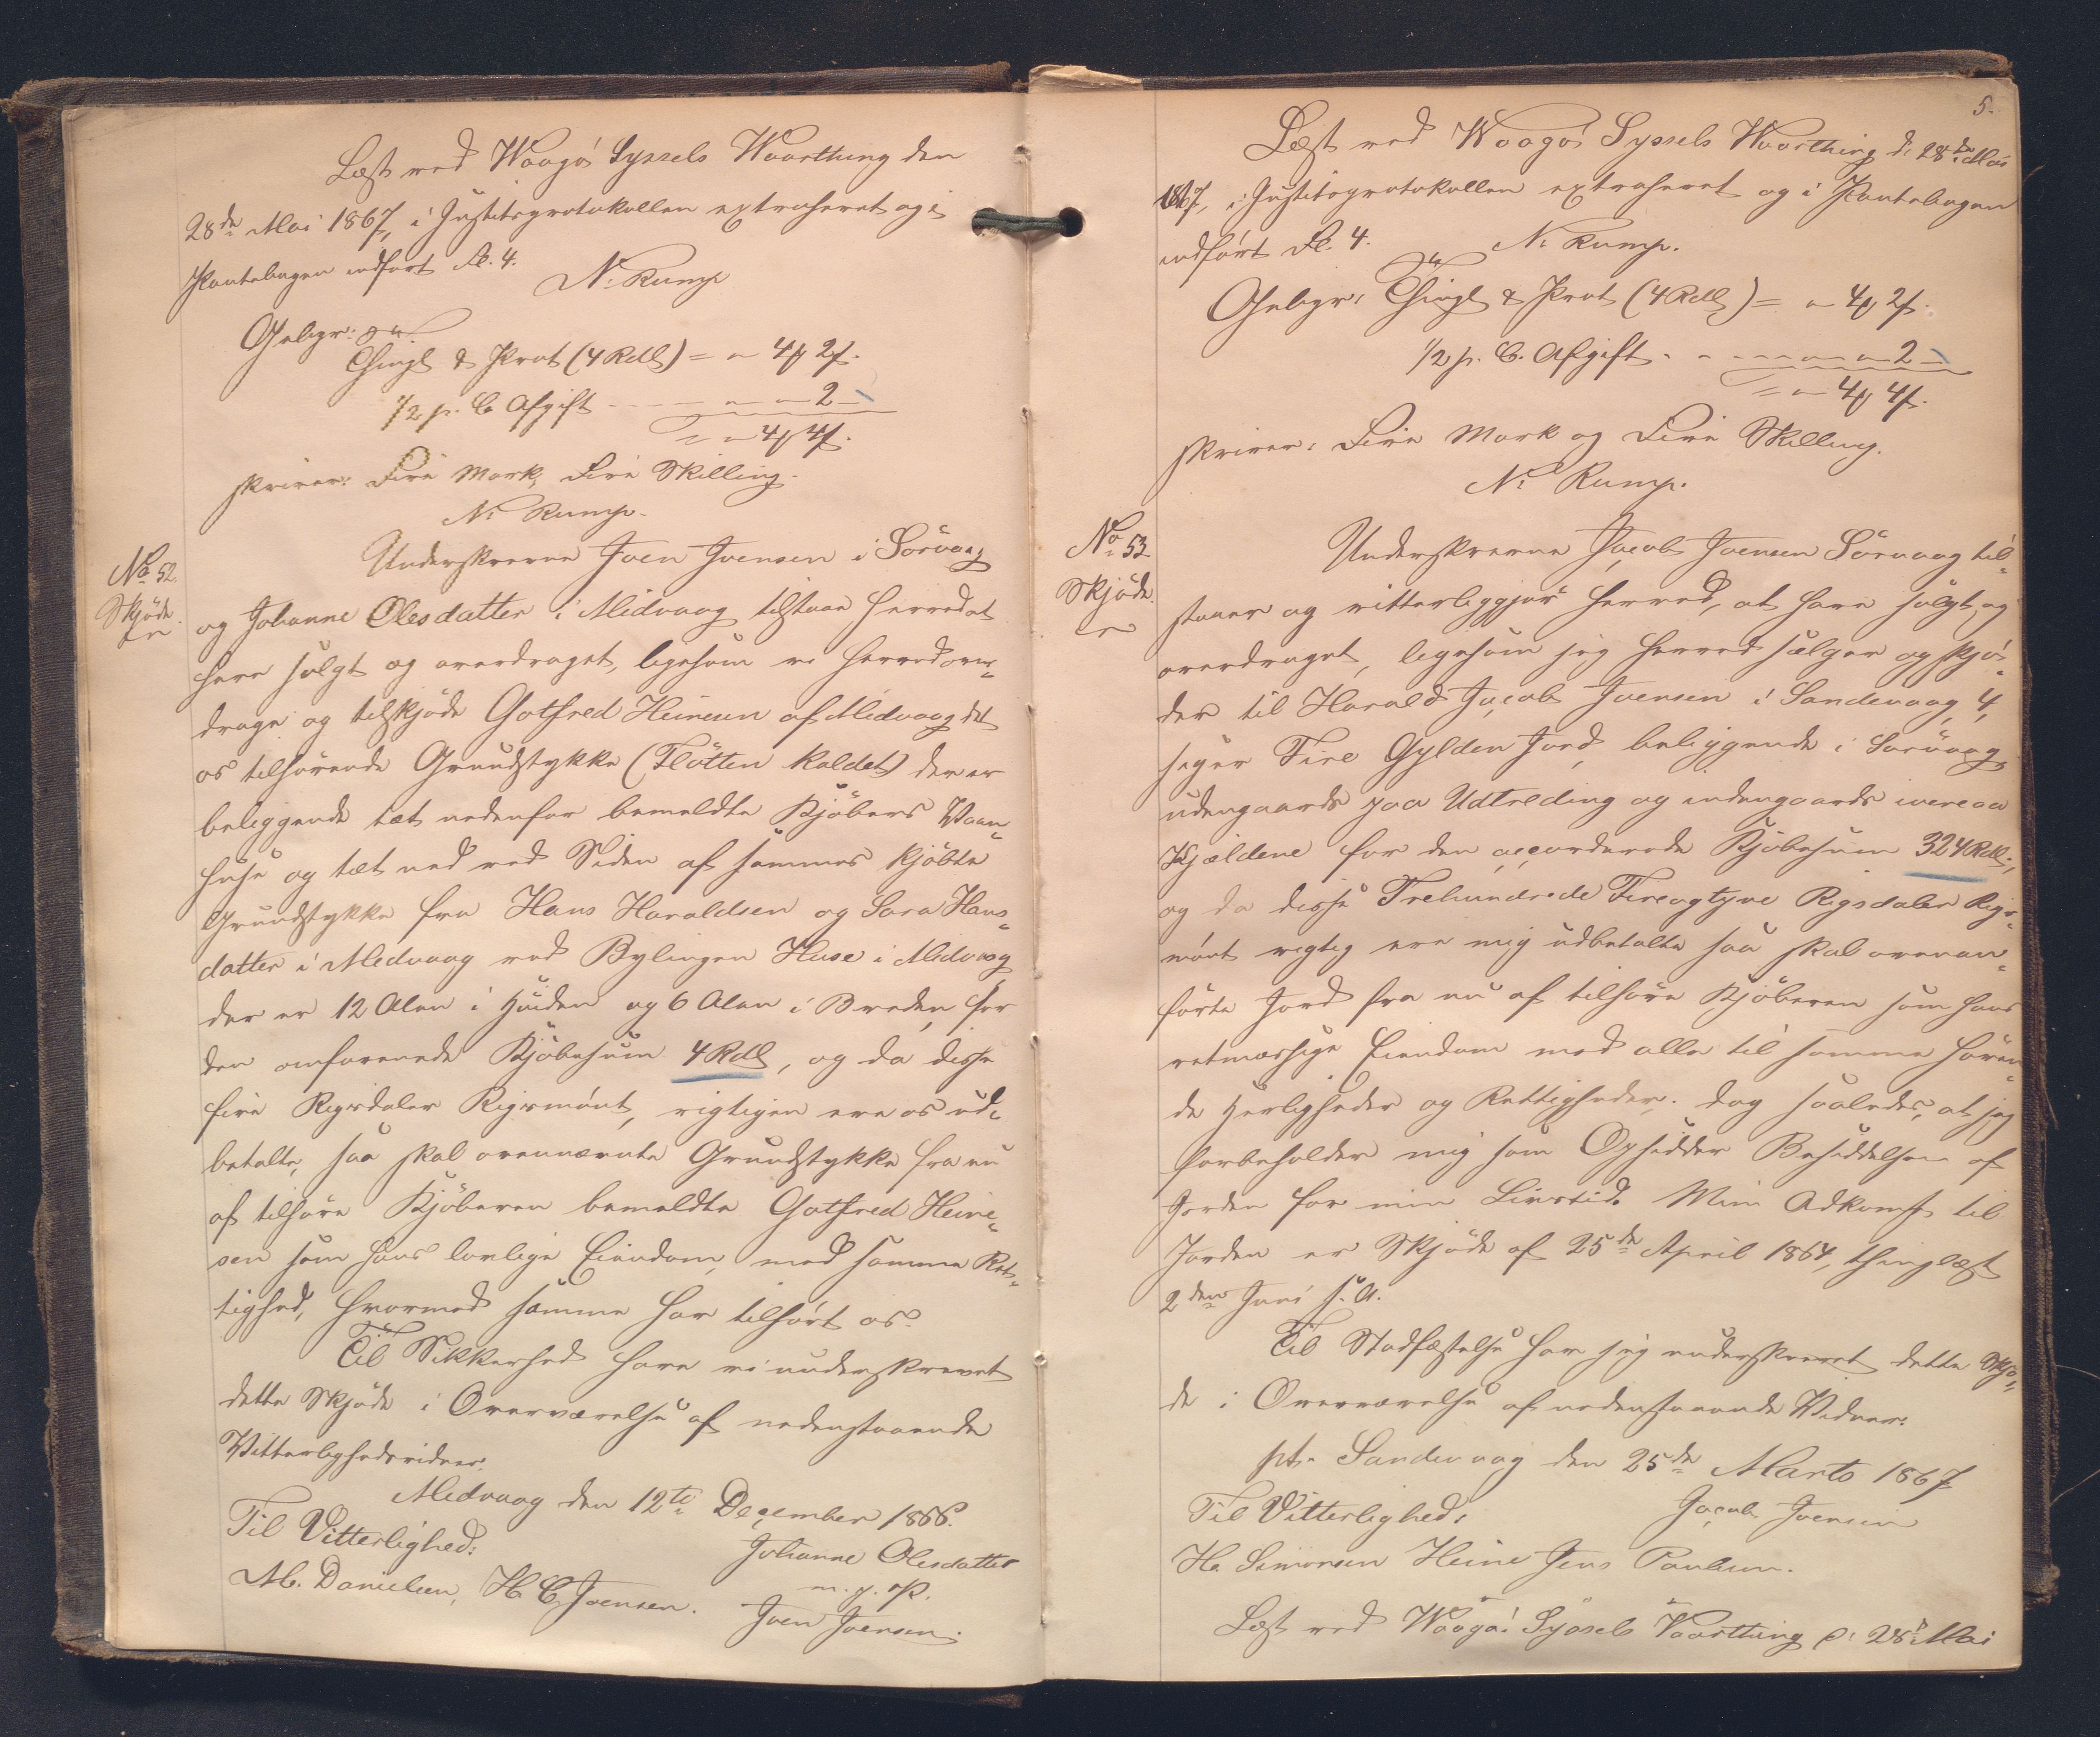 Læst ved Waagö Syssels Waarthing den
28de Mai 1867, i Justitsprotokollen extraheret og i
Pantebogen indført Fol. 4.
N. Rump
Gebyr:
Thingl & Prot (4 Rdl) = " 4 ¥ 2 ß.
1/2 p. C. Afgift - - - " " 2 -
= " 4 ¥ 4 ß.
skriver: Fire Mark, Fire Skilling.
N. Rump.
No 52.
Skjöde
Underskrevne Joen Joensen i Sörvaag
og Johanne Olesdatter i Midvaag tilstaae herved at
have solgt og overdraget, ligesom vi herved over-
drage og tilskjöde Gotfred Heinesen af Midvaag det
os tilhørende Grundstykke (Flötten kaldet) der er
beliggende tæt nedenfor bemeldte Kjöbers Vaan-
huse og tæt ned ved Siden af sammes kjöbte
Grundstykke fra Hans Haraldsen og Sara Hans-
datter i Medvaag ved Bylingen Huse i Midvaag
der er 12 Alen i Høiden og 6 Alen i Breden, for
den omforenede Kjöbesum 4 Rdl, og da disse
fire Rigsdaler Rigsmönt, rigtigen ere os ud-
betalte, saa skal ovennævnte Grundstykke fra nu
af tilhøre Kjöberen bemeldte Gotfred Heine-
sen som hans lovlige Eiendom, med samme Ret-
tighed, hvormed samme har tilhørt os.
Til Sikkerhed have vi underskrevet
dette Skjöde i Overværelse af nedenstaaende
Vitterlighedsvidner.
Medvaag den 12te December 1866.
Til Vitterlighed:
Johanne Olesdatter
m. f. P.
M. Danielsen, H. C. Joensen.
Joen Joensen.
5.
Læst ved Waagö Syssels Waarthing d. 28de Mai
1867, i Justitsprotokollen extraheret og i Pantebogen
indført Fol. 4.
N. Rump.
Gebyr: Thingl & Prot (4 Rdl) = " 4 ¥ 2 ß.
1/2 p. C. Afgift - - - - " " 2 -
= " 4 ¥ 4 ß.
skriver: Fire Mark og Fire Skilling.
N. Rump.
No 53
Skjöde.
Underskrevne Jacob Joensen Sörvaag til-
staaer og vitterliggjør herved, at have solgt og
overdraget, ligesom jeg herved sælger og skjö-
der til Harald Jacob Joensen i Sandevaag 4,
siger Fire Gylden Jord, beliggende i Sørvaag,
udengaards paa Udtreding og indengaards
Kjældene for den accorderede Kjöbesum 324 Rdl.,
og da disse Trehundrede Fireogtyve Rigsdaler Rigs-
mönt rigtig ere mig udbetalte saa skal ovenan-
førte Jord fra nu af tilhøre Kjöberen som hans
retmæssige Eiendom med alle til samme høren-
de Herligheder og Rettigheder. dog saaledes, at jeg
forbeholder mig som Opsidder Besiddelsen af
Jorden for min Livstid. Min Adkomst til
Jorden er Skjöde af 25de April 1864, thinglæst
2den Juni s. A.
Til Stadfæstelse har jeg underskrevet dette Skjö-
de i Overværelse af nedenstaaende Vidner:
pt. Sandevaag den 25de Marts 1867
Til Vitterlighed:
Jacob Joensen
H. Simonsen Heine Jens Poulsen.
Læst ved Waagö Syssels Vaarthing d. 28de Mai